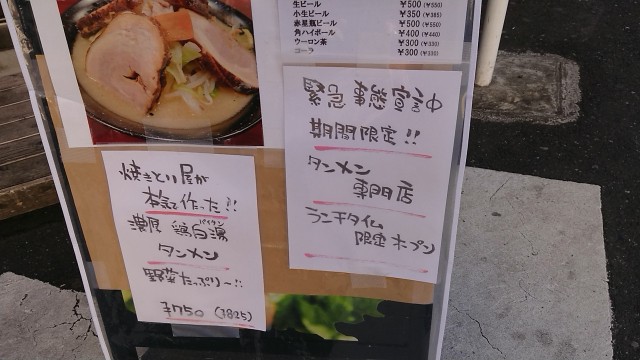 生ビール ¥500 (¥550)
小生ビール ¥350 (¥385)
赤星瓶ビール ¥500 (¥550)
角ハイボール ¥400 (¥440)
ウーロン茶 ¥300 (¥330)
コーラ ¥300 (¥330)
緊急事態宣言中
期間限定!!
タンメン
専門店
ランチタイム
限定オープン
焼きとり屋が
本気で作った!!
濃厚 鶏白湯
パイタン
タンメン
野菜たっぷり〜!!
¥750 (¥825)